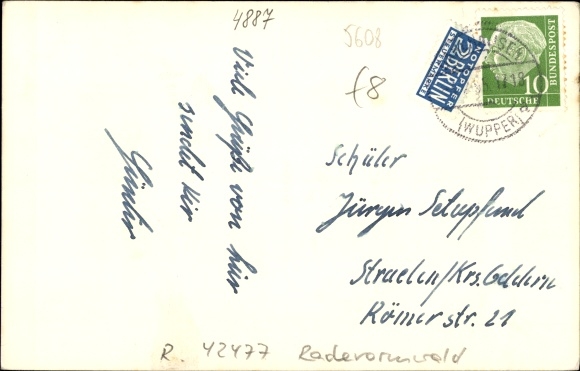 4887
5608
£8
Viele Grüße von hier
sendet dir
Günter
NOTOPFER
2 BERLIN
STEUERMARKE
10
DEUTSCHE
BUNDESPOST
(WUPPER)
Schüler
Jürgen
Straelen/Krs. Geldern
Römerstr. 21
R. 42477 Radevormwald